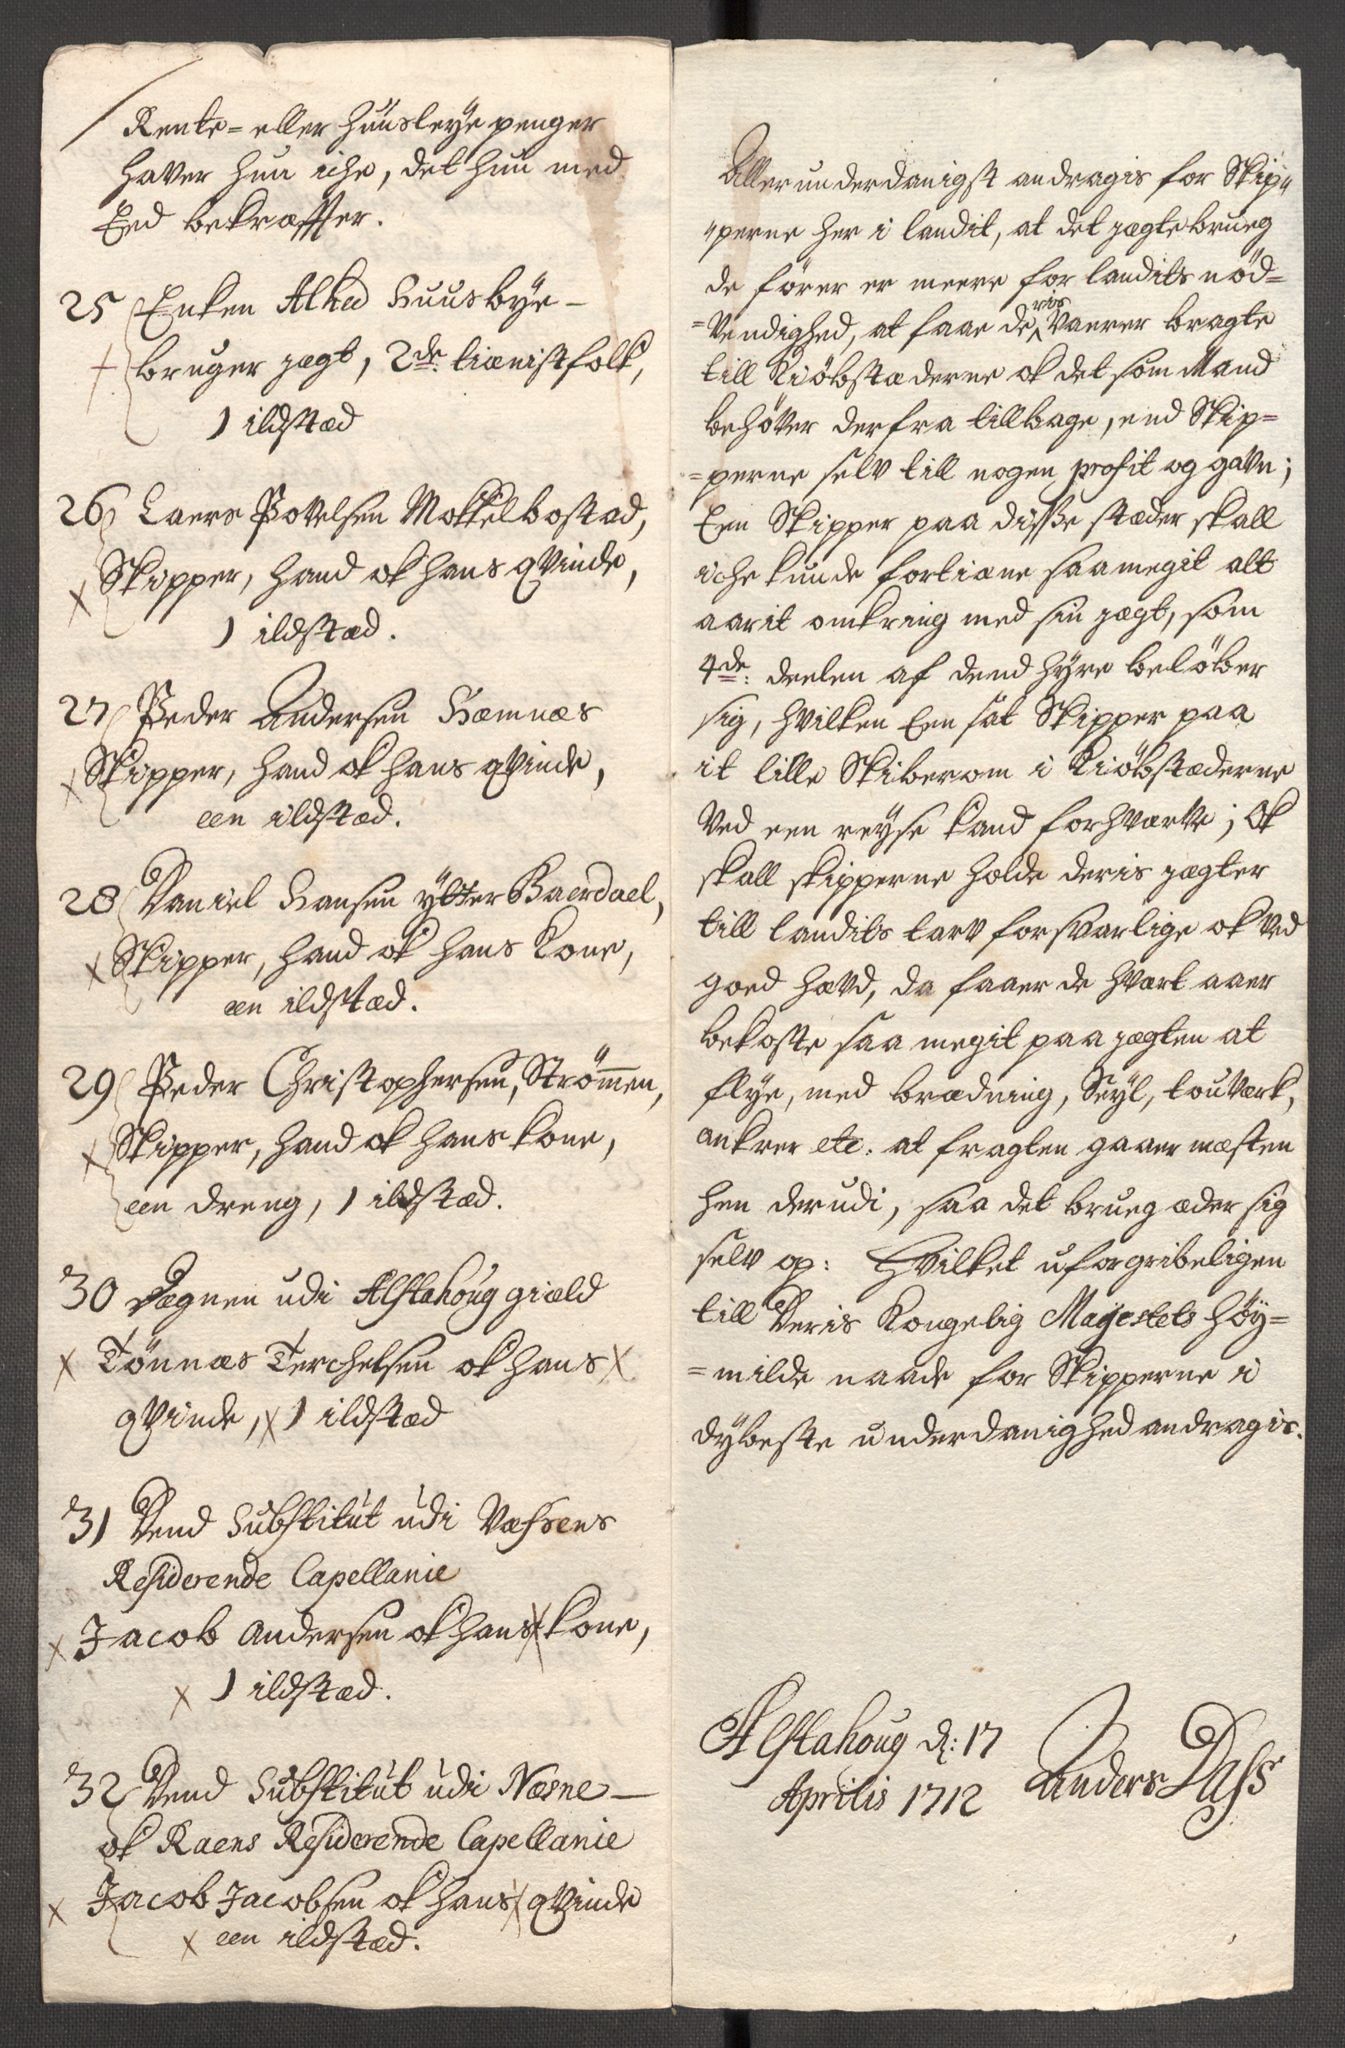 Rente- eller huusleye penger
haver hun iche, det hun med
Eed bekræffter.
25 Enken Alhed Huusbye-
bruger jægt, 2de tiænistfolk,
1 ildstæd
26 Laers Povelsen Mokkelbostad,
x Skipper, hand ok hans qvinde,
1 ildstæd.
27 Peder Andersen Hæmnæs
x Skipper, hand ok hans qvinde,
een ildstæd.
28 Daniel Hansen ytter Baerdael,
x Skipper, hand ok hans kone,
een ildstæd.
29 Peder Christophersen, Strømmen,
x Skipper, hand ok hans kone,
een dreng, 1 ildstæd.
30 Dægnen udi Alstahoug giæld
x Tönnæs Terchelsen ok hans x
qvinde, x 1 ildstæd
31 Dend Substitut udi Væfsens
Residerende Capellanie
x Jacob Andersen ok hans x kone,
x 1 ildstæd.
32 Dend Substitut udi Næsne-
ok Raens Residerende Capellanie
x Jacob Jacobsen ok hans x qvinde
x een ildstæd.
Allerunderdanigst andragis for Skip"
"perne her i landit, at det jægtebrueg
de fører er meere for landits nöd=
=vendighed, at faae deris vaerer bragte
till Kiöbstæderne ok det som Mand
behøver derfra tillbage, end Skip=
=perne selv till nogen profit og gavn;
Een Skipper paa disse stæder skall
iche kunde fortiæne saa megit alt
aarit omkring med sin jægt, som
4de: deelen af dend hyre beløber
sig, hvilken Een sat Skipper paa
it lille Skiberom i Kiöbstæderne
Ved een reyse kand forhværve; Ok
skall skipperne holde deris jægter
till landits tarv forsvarlige ok ved
goed hævd, da faaer de hvært aaer
bekoste saa megit paa jægten at
flye, med brædning, Seyl, touværk,
ankrer etc. at fragten gaaer mæsten
hen derudi, saa det brueg æder sig
selv op: Hvilket uforgribeligen
till Deris Kongelig Mayestets høy=
=milde naade for Skipperne i
dybeste underdanighed andragis.
Alstahoug d: 17
Aprilis 1712
Anders Dass